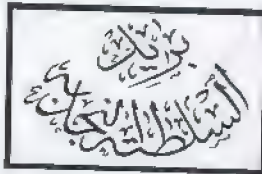 بريد
السلطنة النجدية